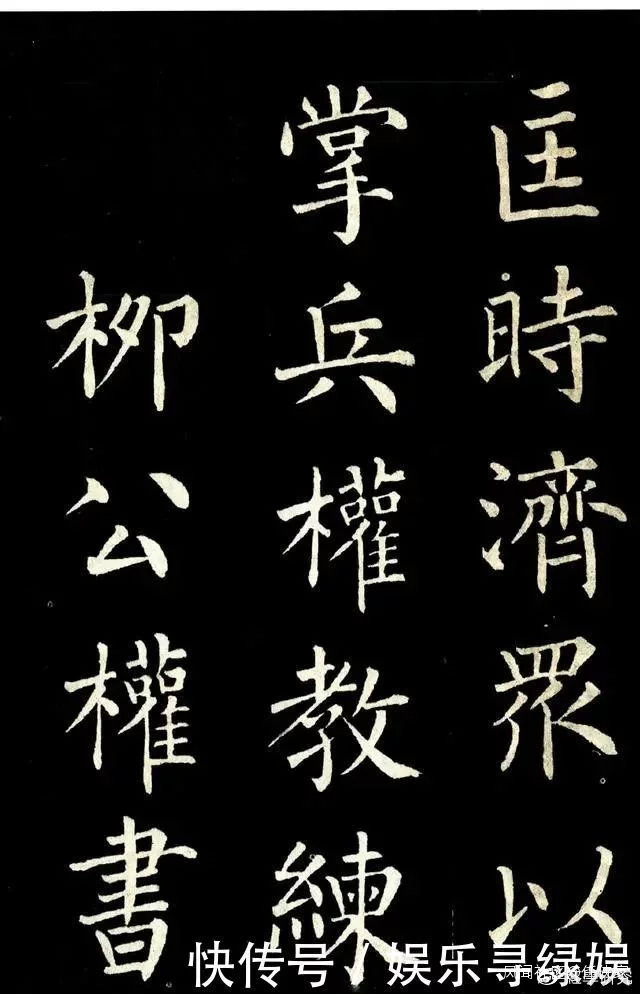 匡時濟眾以
掌兵權教練
柳公權書
快传号/娱乐寻绿娱